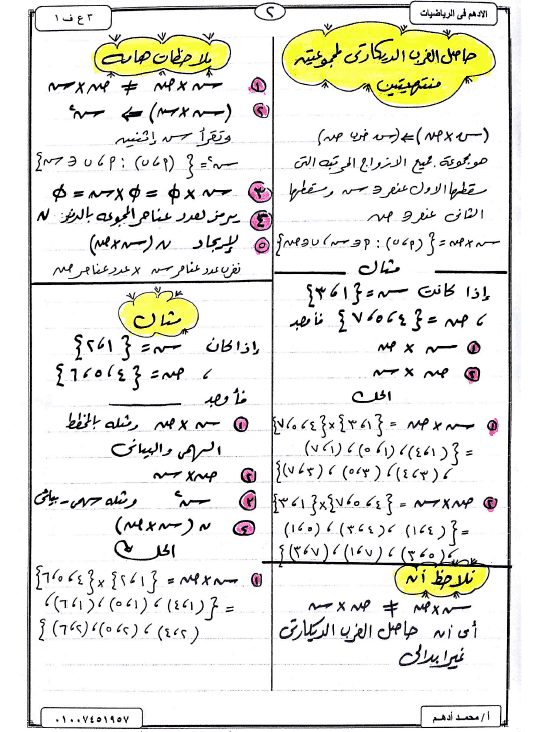 الادهم فى الرياضيات
٢
٣ ع ف ١
حاصل الضرب الديكارتى لمجموعيته
منتهيتين
(س × ص) ⇐ (س ضرب ص)
هو مجموعة جميع الازواج المرتبه التى
مسقطها الاول عنصر ∈ س ومسقطها
الثانى عنصر ∈ ص
س × ص = {(P، ب) : P ∈ س، ب ∈ ص}
مثال
إذا كانت س = {١، ٣}
، ص = {٤، ٥، ٧} فأوجد
١ س × ص
٢ ص × س
الحل
١ س × ص = {١، ٣} × {٤، ٥، ٧}
= {(١، ٤)، (١، ٥)، (١، ٧)
، (٣، ٤)، (٣، ٥)، (٣، ٧)}
٢ ص × س = {٤، ٥، ٧} × {١، ٣}
= {(٤، ١)، (٤، ٣)، (٥، ١)
، (٥، ٣)، (٧، ١)، (٧، ٣)}
نلاحظ أنه
س × ص ≠ ص × س
أى أنه حاصل الضرب الديكارتى
غير ابدالى
ملاحظات هامه
١ س × ص ≠ ص × س
٢ (س × س) ⇐ س٢
وتقرأ س إثنين
س٢ = {(P، ب) : P، ب ∈ س}
٣ س × Φ = Φ × س = Φ
٤ يرمز لعدد عناصر المجموعه بالرمز ن
٥ لإيجاد ن (س × ص)
نضرب عدد عناصر س × عدد عناصر ص
مثال
إذا كان س = {١، ٢}
، ص = {٤، ٥، ٦}
فأوجد
١ س × ص ومثله بالمخطط
السهمى والبيانى
٢ ص × س
٣ س٢ ومثله سهمى - بيانى
٤ ن (س × ص)
الحل
١ س × ص = {١، ٢} × {٤، ٥، ٦}
= {(١، ٤)، (١، ٥)، (١، ٦)،
(٢، ٤)، (٢، ٥)، (٢، ٦)}
أ / محمد أدهم
٠١٠٠٧٤٥١٩٥٧